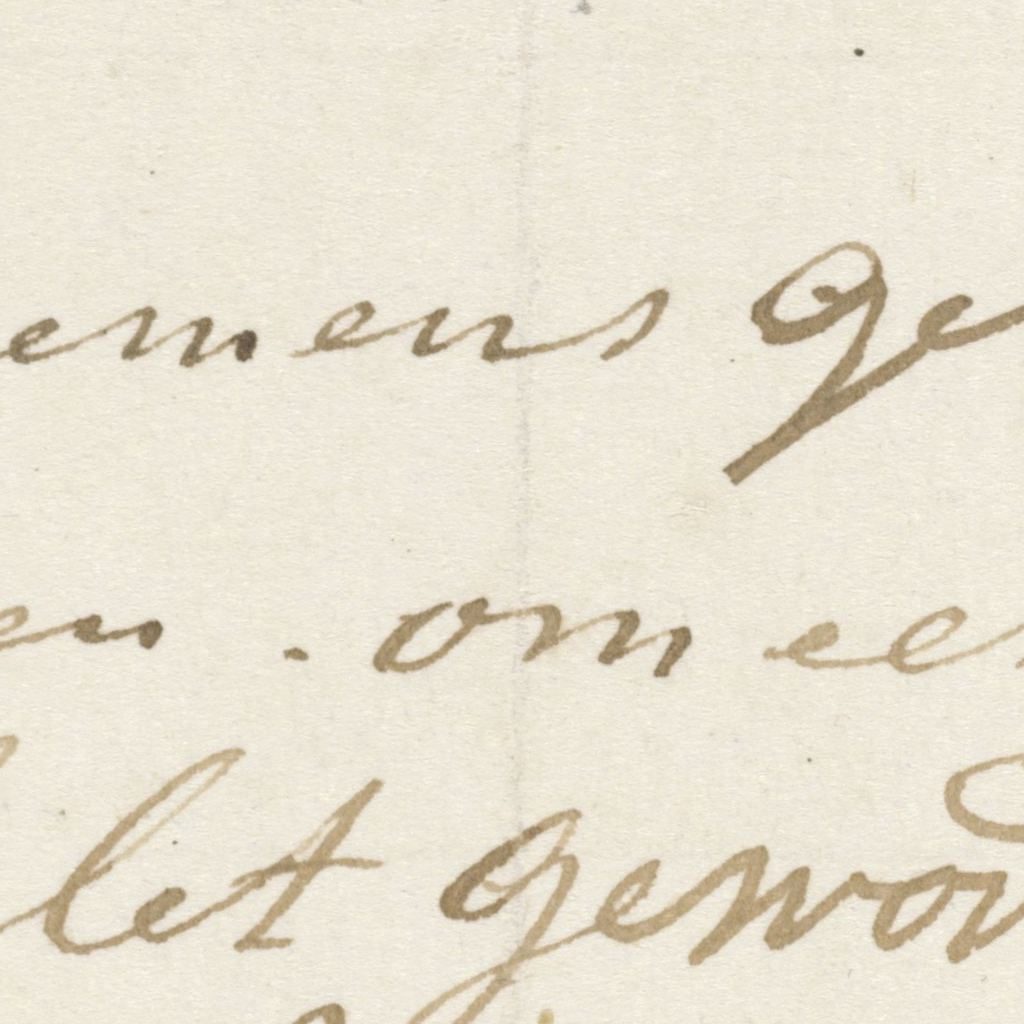 emens ge
en . om ee
let gewor